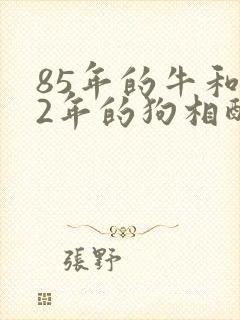 85年的牛和
2年的狗相配
張野